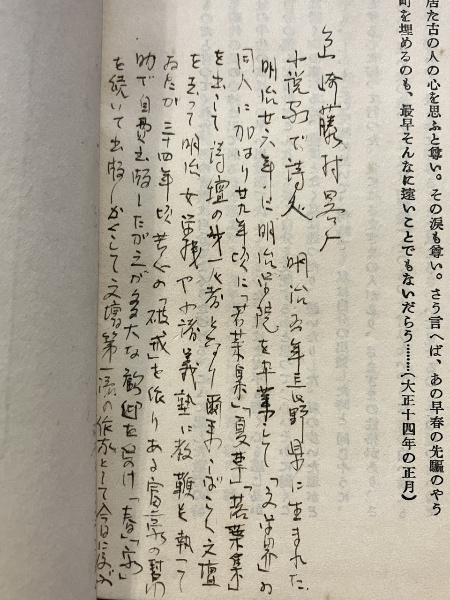 居た古の人の心を思ふと尊い。その涙も尊い。さう言へば、あの早春の先驅のやう
町を埋めるのも、最早そんなに遠いことでもないだらう……(大正十四年の正月)
島崎藤村
小説家で詩人 明治五年長野県に生まれた
明治廿六年に明治学院を卒業して「文学界」の
同人に加はり廿九年頃に「若菜集」「夏草」「落葉集」
を出して詩壇の第一人者となり爾来しばらく文壇
を去って明治女学校や小諸義塾に教鞭を執って
ゐたが三十四年頃苦心の「破戒」を作りある富豪の幇
助で自費出版したが之が多大な歓迎を受け「春」「家」
を続いて出版しかくして文壇第一流の作家として今日に及ぶ